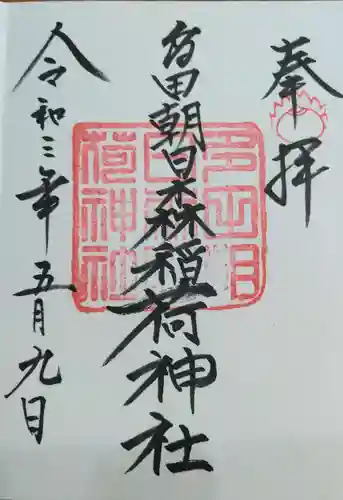 奉拝
多田朝日森稲荷神社
令和三年五月九日
荷神社